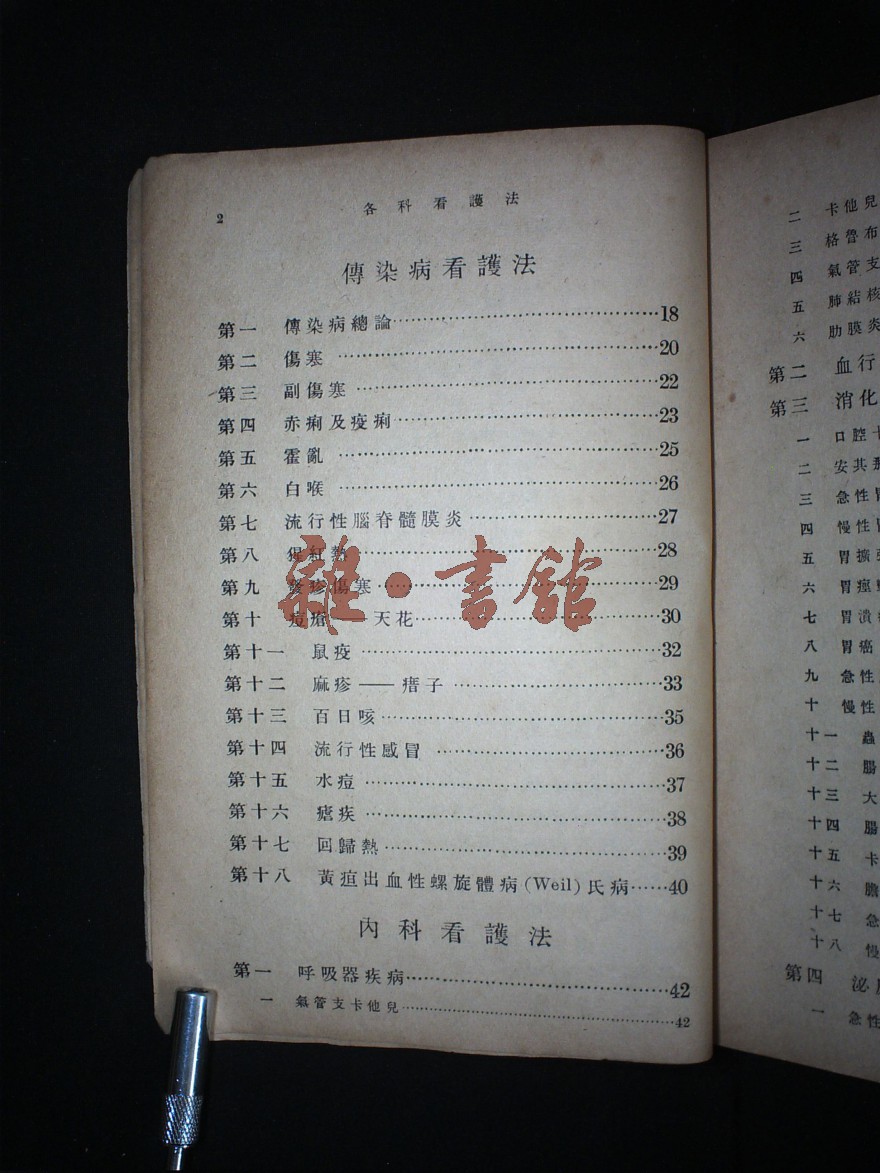 2
各科看護法
傳染病看護法
第一 傳染病總論 18
第二 傷寒 20
第三 副傷寒 22
第四 赤痢及疫痢 23
第五 霍亂 25
第六 白喉 26
第七 流行性腦脊髓膜炎 27
第八 猩紅熱 28
第九 發疹傷寒 29
第十 痘瘡——天花 30
第十一 鼠疫 32
第十二 麻疹——㾦子 33
第十三 百日咳 35
第十四 流行性感冒 36
第十五 水痘 37
第十六 瘧疾 38
第十七 回歸熱 39
第十八 黃疸出血性螺旋體病(Weil)氏病 40
內科看護法
第一 呼吸器疾病 42
一 氣管支卡他兒 42
雜·書舘
二 卡他兒
三 格魯布
四 氣管支
五 肺結核
六 肋膜炎
第二 血行
第三 消化
一 口腔
二 安其
三 急性胃
四 慢性胃
五 胃擴張
六 胃痙
七 胃潰
八 胃癌
九 急性
十 慢性
十一 蟲
十二 腸
十三 大
十四 腸
十五 卡
十六 膽
十七 急
十八 慢
第四 泌
一 急性